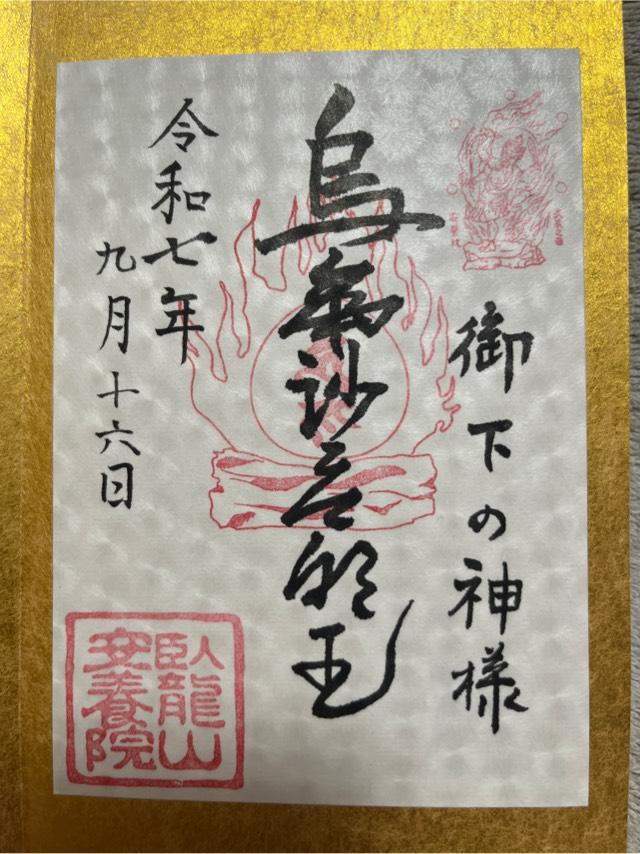 御下の神様
烏蒭沙广明王
令和七年
九月十六日
臥龍山
安養院